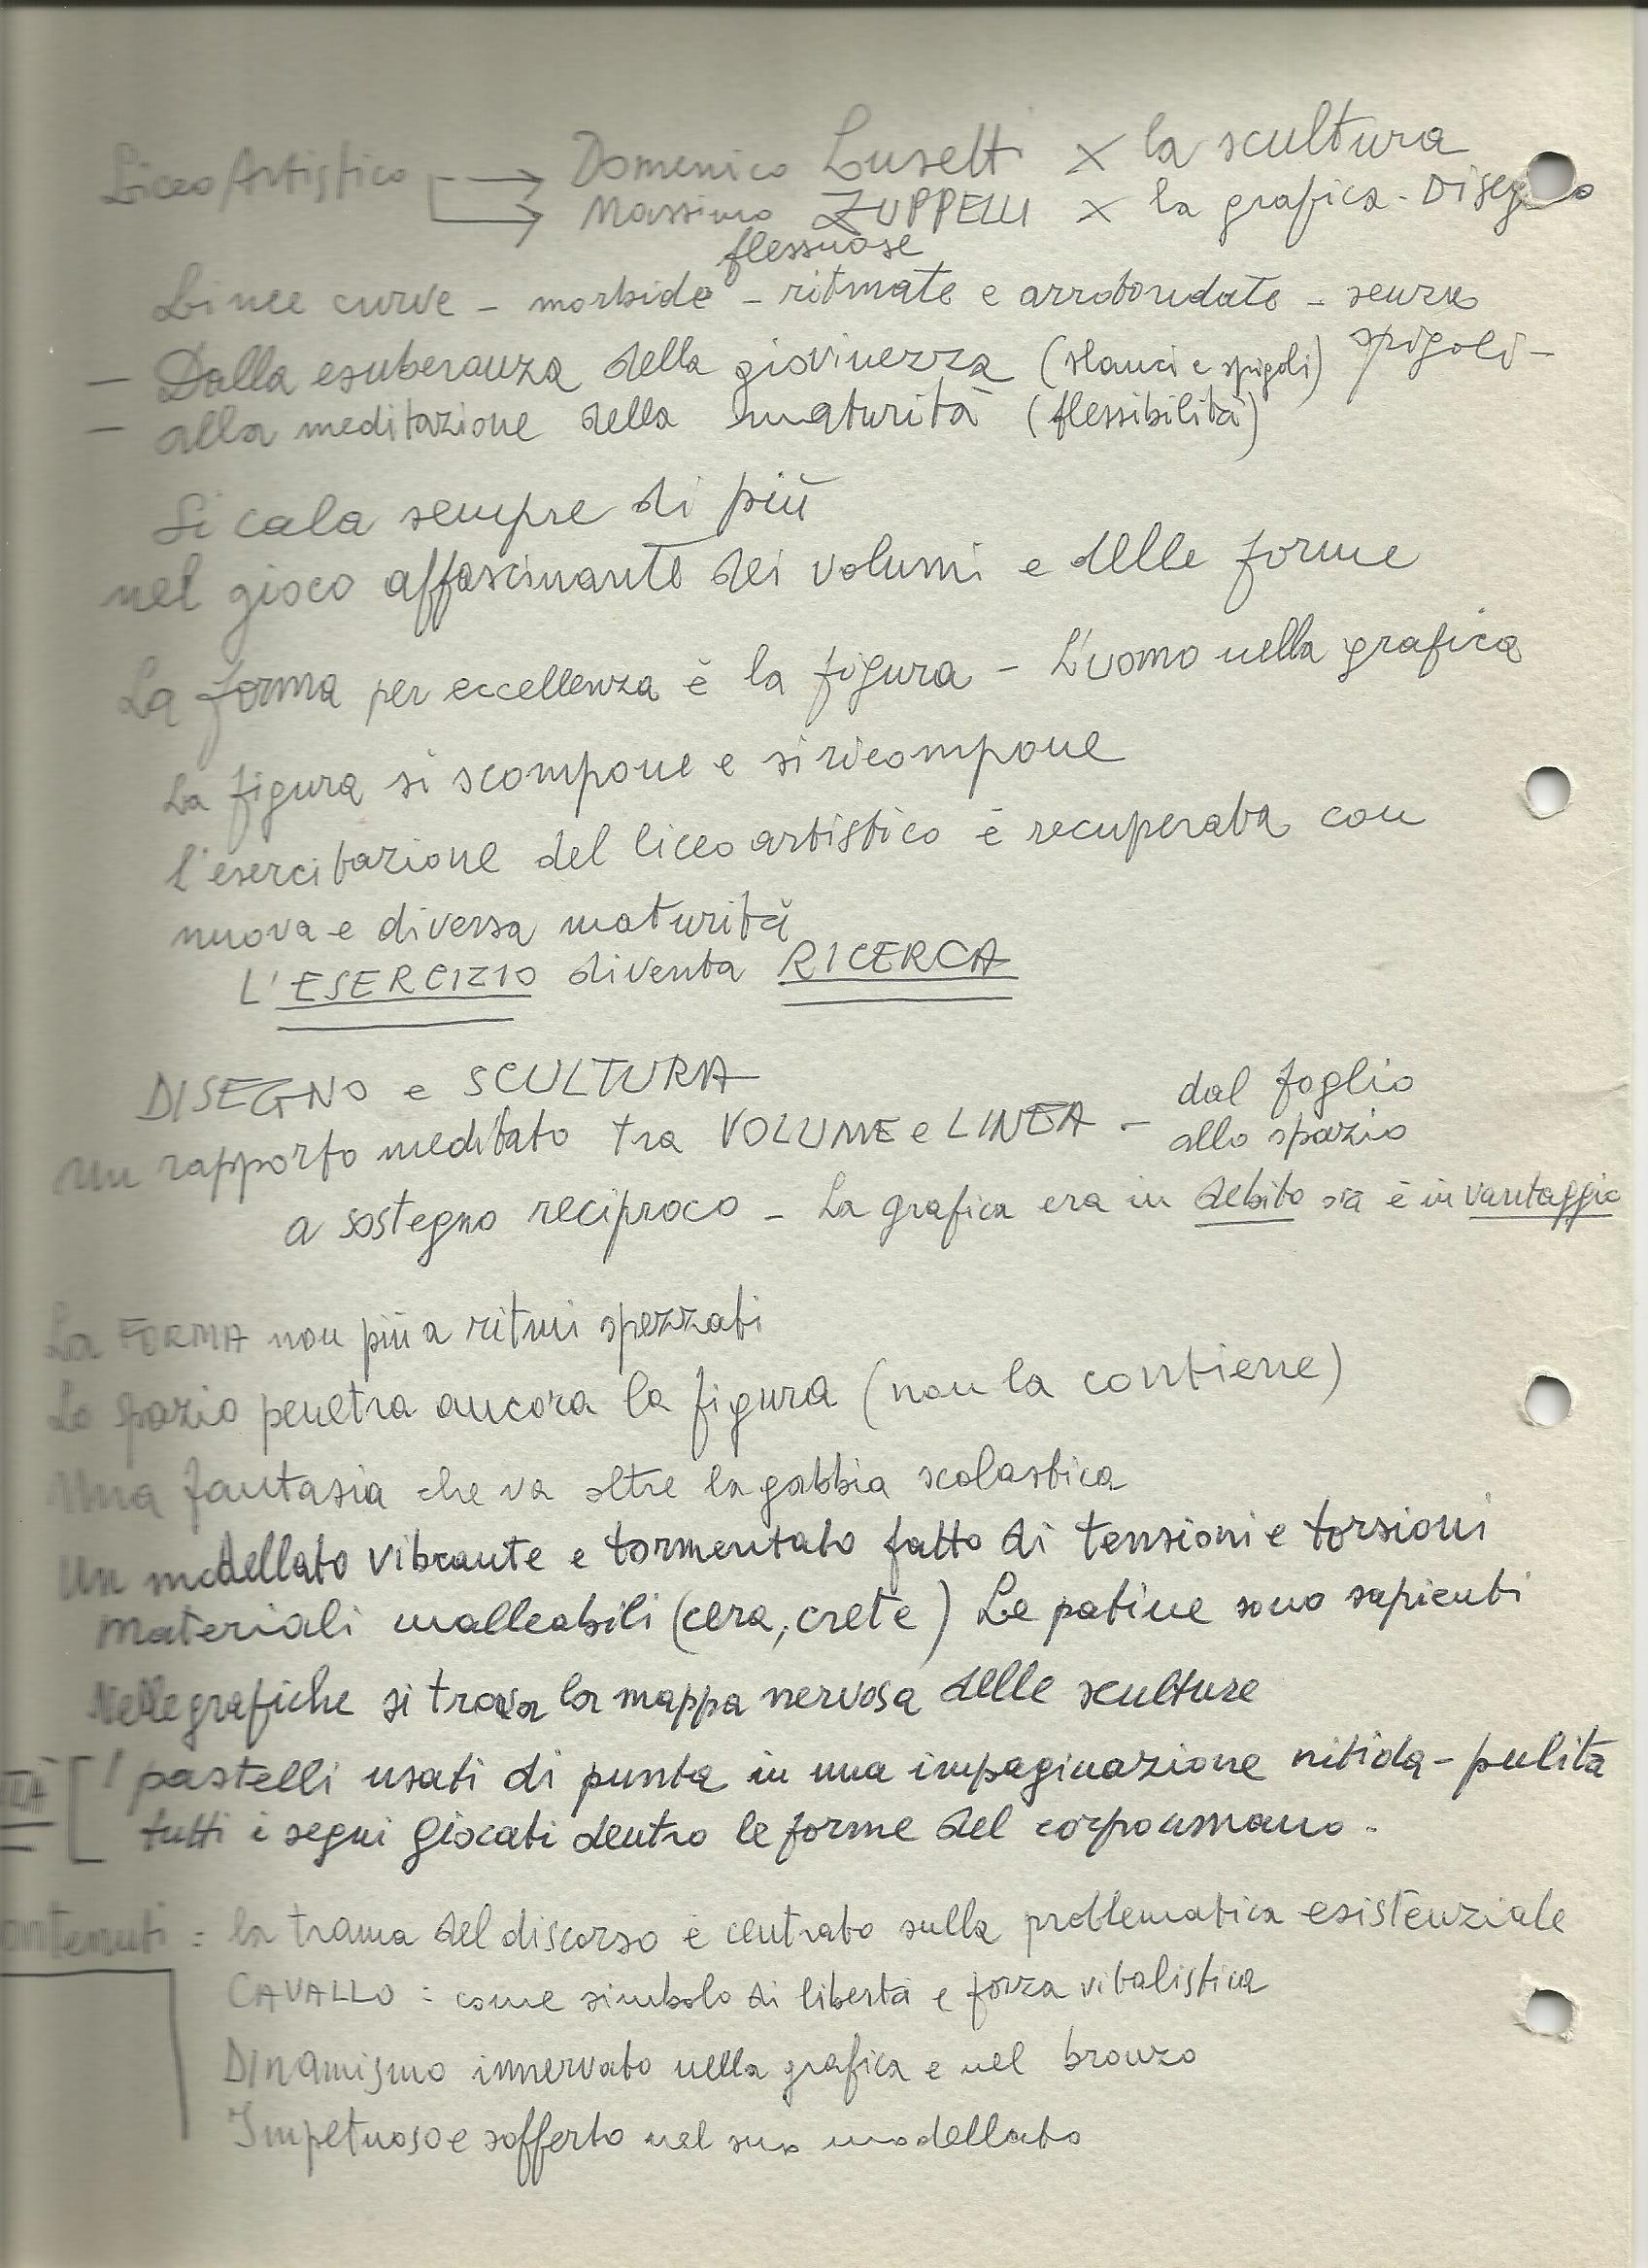 Liceo Artistico → Domenico Lusetti × la scultura
→ Massimo ZUPPELLI × la grafica - Disegno
flessuose
Linee curve - morbide - ritmate e arrotondate - senza
spigoli -
- Dalla esuberanza della giovinezza (slanci e spigoli)
- alla meditazione della maturità (flessibilità)
Si cala sempre di più
nel gioco affascinante dei volumi e delle forme
La forma per eccellenza è la figura - L'uomo nella grafica
La figura si scompone e si ricompone
l'esercitazione del liceo artistico è recuperata con
nuova e diversa maturità
L'ESERCIZIO diventa RICERCA
DISEGNO e SCULTURA
un rapporto meditato tra VOLUME e LINEA - dal foglio
allo spazio
a sostegno reciproco - La grafica era in debito ora è in vantaggio
La FORMA non più a ritmi spezzati
Lo spazio penetra ancora la figura (non la contiene)
Una fantasia che va oltre la gabbia scolastica
Un modellato vibrante e tormentato fatto di tensioni e torsioni
Materiali malleabili (cera, crete) Le patine sono sapienti
Nelle grafiche si trova la mappa nervosa delle sculture
I pastelli usati di punta in una impaginazione nitida - pulita
tutti i segni giocati dentro le forme del corpo umano -
ontenuti : la trama del discorso è centrato sulla problematica esistenziale
CAVALLO : come simbolo di libertà e forza vitalistica
Dinamismo innervato nella grafica e nel bronzo
Impetuoso e sofferto nel suo modellato